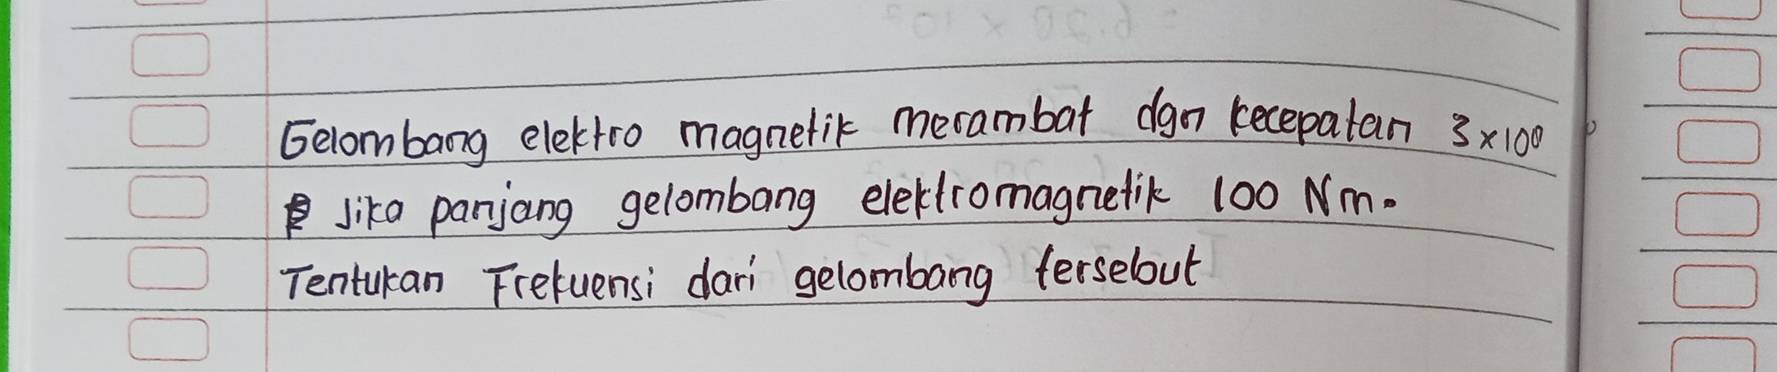 Gelombang elektro magnetik merambat dgn kecepatan 3×10⁸
Jika panjang gelombang elektromagnetik 100 Nm.
Tentukan Frekuensi dari gelombang tersebut